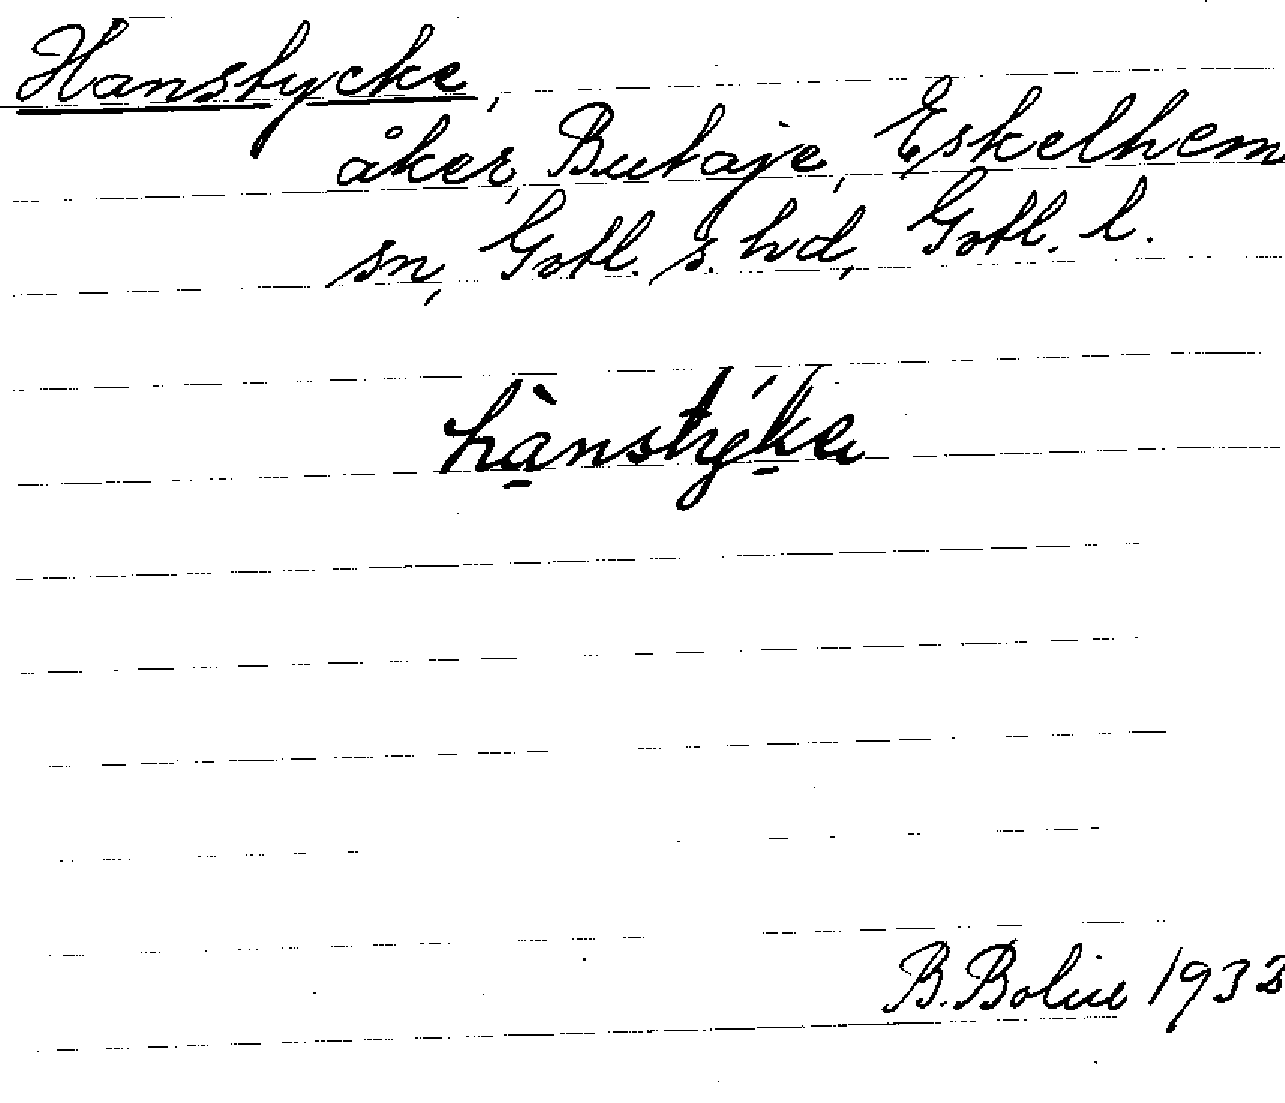 Hanstycke,
åker, Butaje, Eskelhem
sn, Gotl. s. hd, Gotl. l.
hà̱nstýḵe
B. Bolin 1932